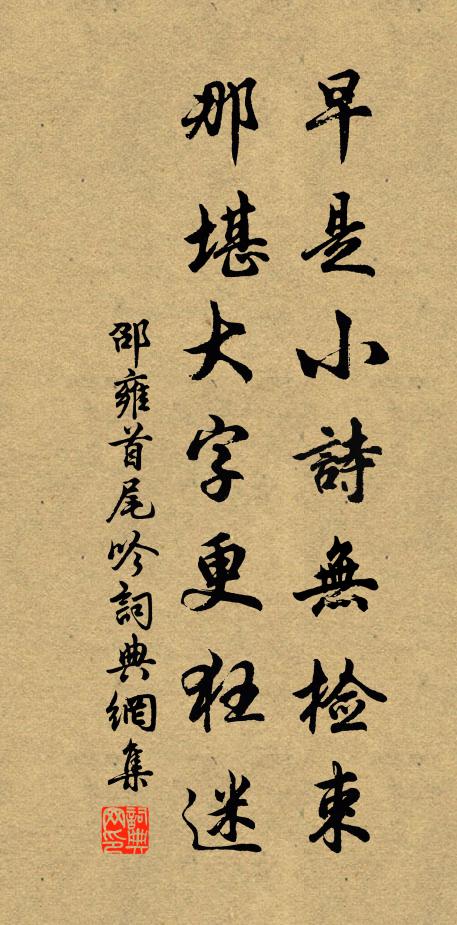 早是小詩無檢束
那堪大字更狂迷
邵雍首尾吟詞典網集
詞典网印